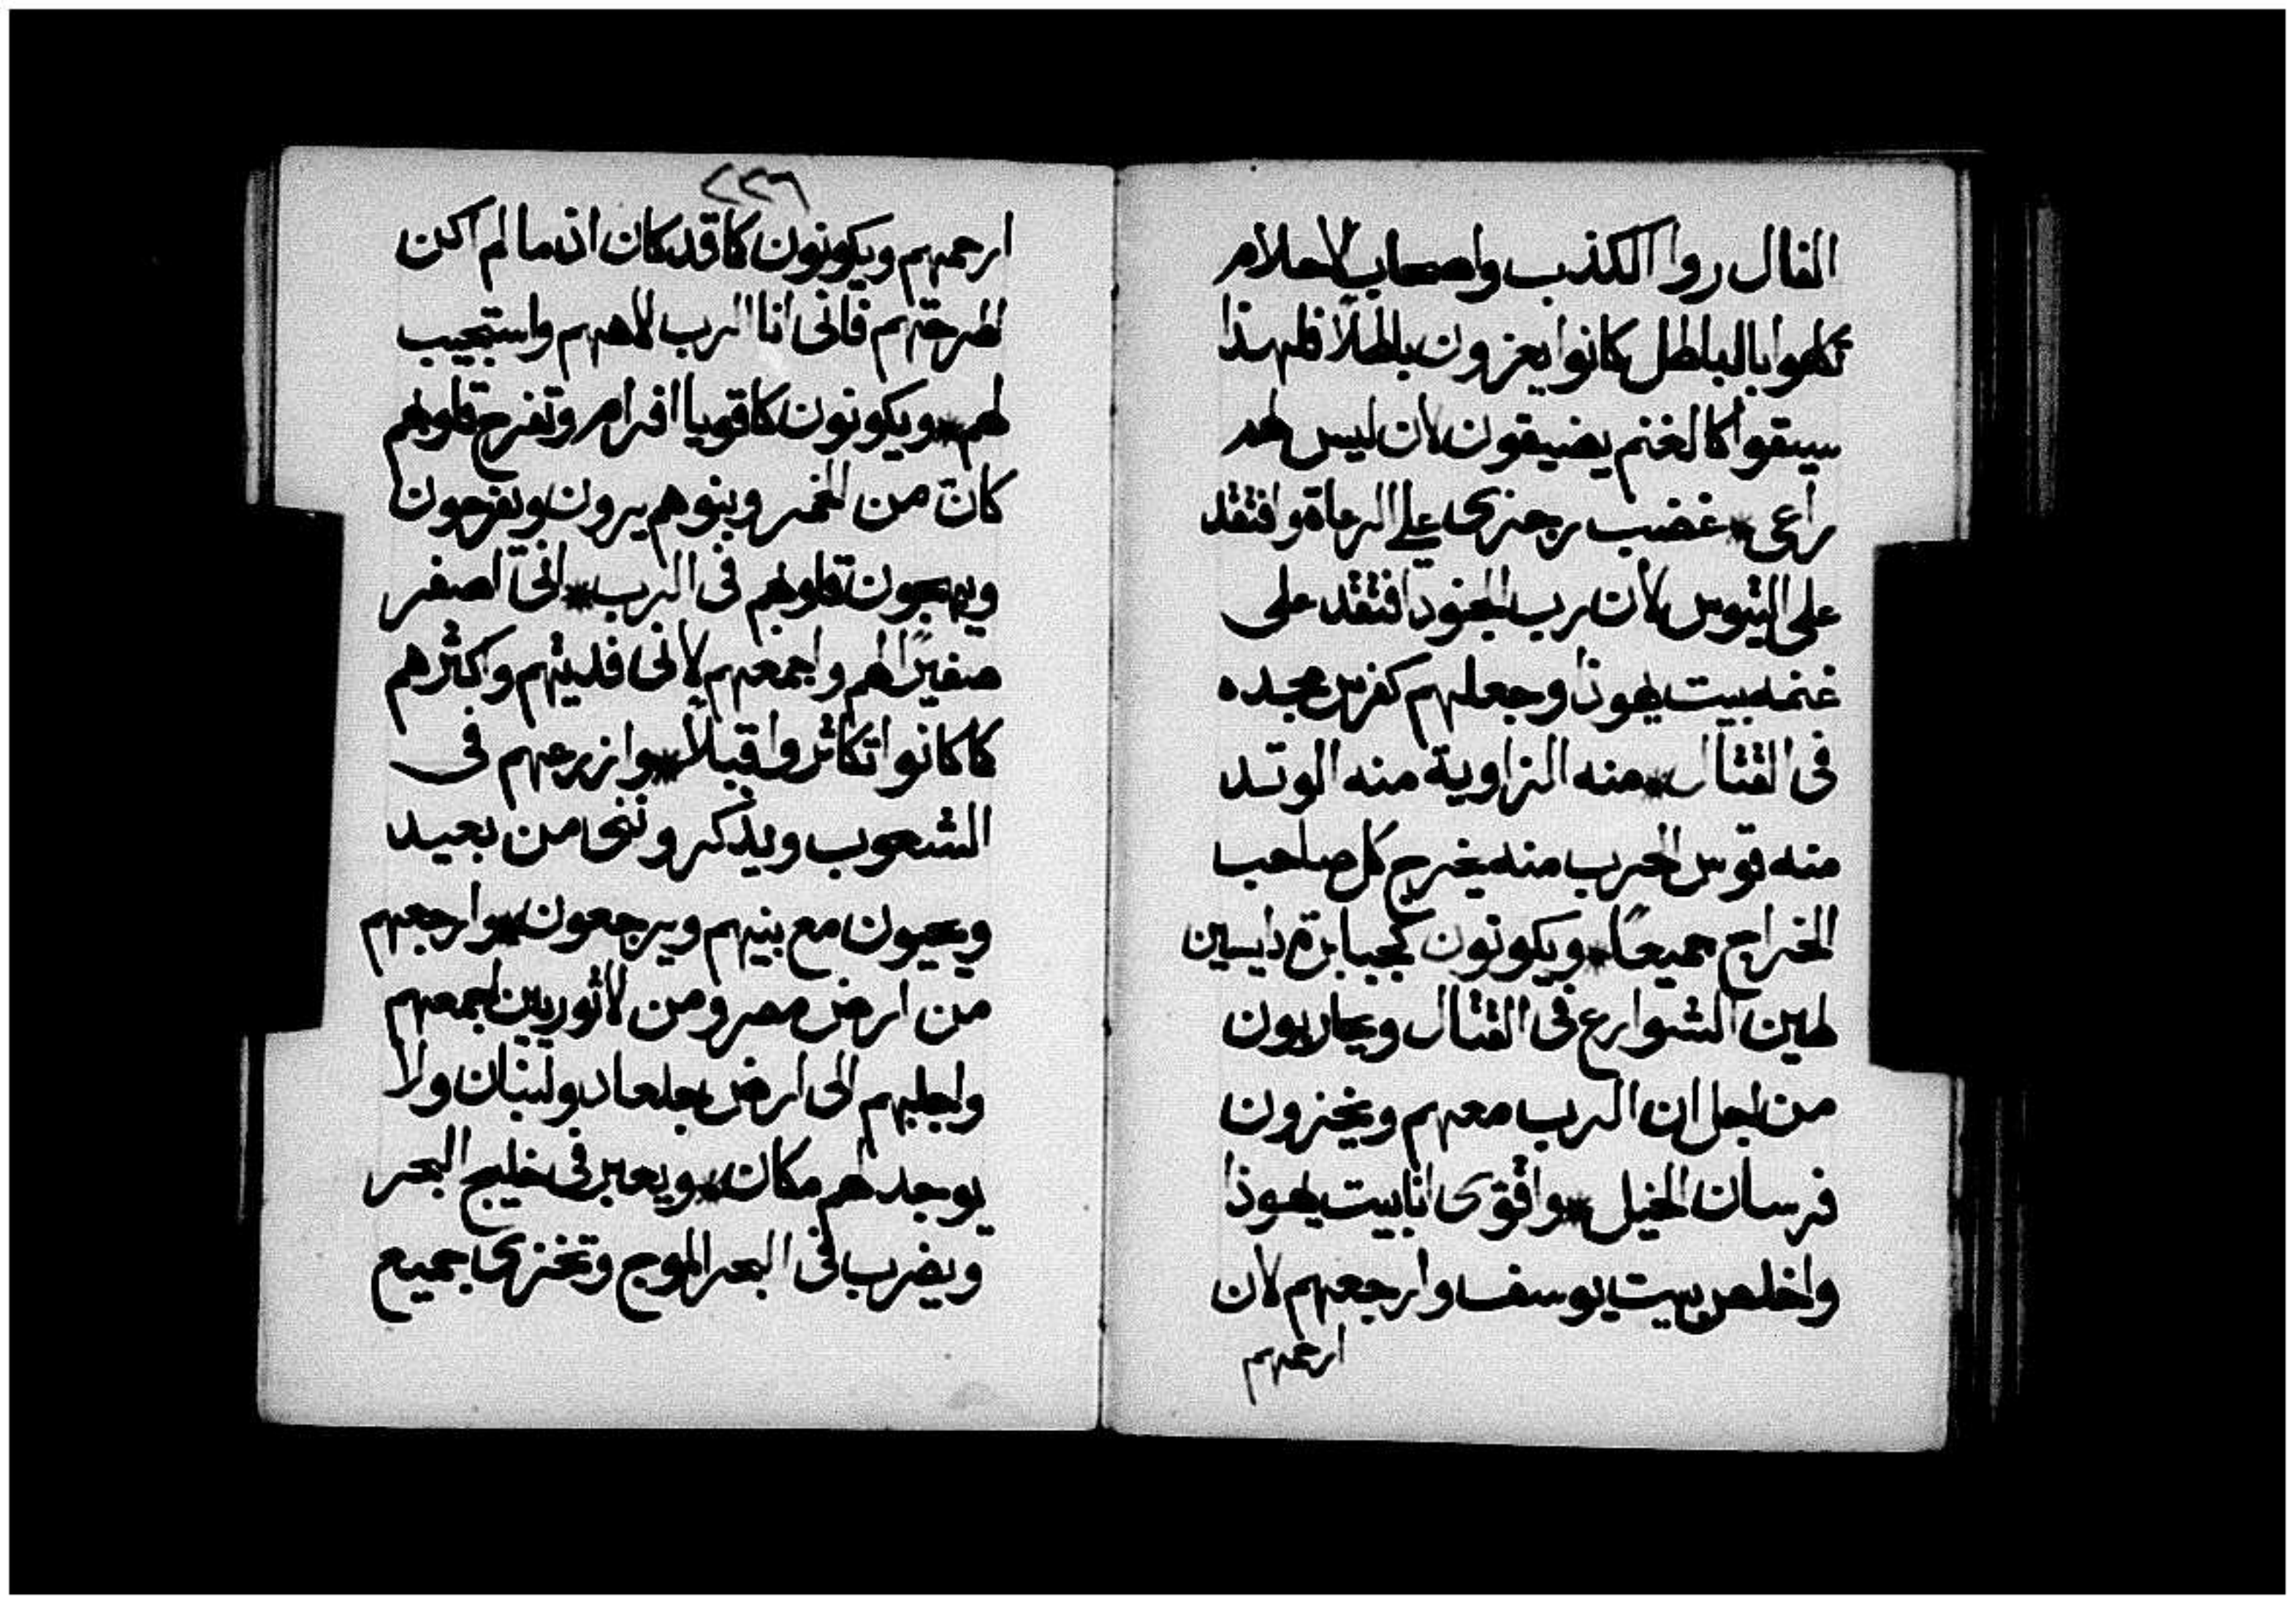 الفال روا الكذب واصحاب الاحلام
تكلموا بالباطل كانوا يعزون باطلاً فلهذا
سيقوا كالغنم يضيقون لان ليس لهم
راعى * غضب رجزى على الرعاة وافتقد
على التيوس لان رب الجنود افتقد على
غنمه بيت يهوذا وجعلهم كفرس مجده
فى القتال * منه الزاوية منه الوتد
منه قوس الحرب منه يخرج كل صاحب
الخراج جميعًا * ويكونون كجبابرة دايسين
طين الشوارع فى القتال ويحاربون
من اجل ان الرب معهم ويخزون
فرسان الخيل * واقوّى انا بيت يهوذا
واخلص بيت يوسف وارجعهم لان
ارحمهم
٢٢٦
ارحمهم ويكونون كما قد كان اذ ما لم اكن
اطرحتهم فانى انا الرب الاههم واستجيب
لهم * ويكونون كاقويا افرام وتفرح قلوبهم
كان من الخمر وبنوهم يرون ويفرحون
ويبهجون قلوبهم فى الرب * انى اصفر
صفيرًا لهم واجمعهم لانى فديتهم واكثرهم
كما كانوا تكاثروا قبلاً * وازرعهم فى
الشعوب ويذكروننى من بعيد
ويحيون مع بنيهم ويرجعون * وارجعهم
من ارض مصر ومن الاثوريين اجمعهم
واجلبهم الى ارض جلعاد ولبنان ولا
يوجد لهم مكان * ويعبر فى خليج البحر
ويضرب فى البحر الموج وتخزى جميع